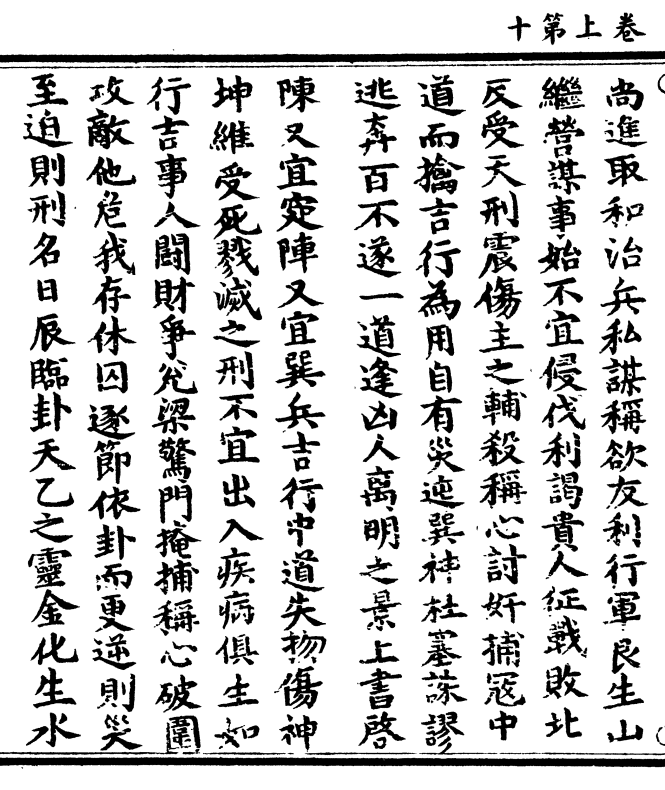 卷上第十
尚進取和治兵私謀稱欲友利行軍艮生山
繼營謀事始不宜侵伐利謁貴人征戰敗北
反受天刑震傷主之輔殺稱心討奸捕冦中
道而擒吉行為用自有災迍巽神杜塞謀謬
逃奔百不遂一道逢凶人离明之景上書啓
陳又宜㝎陣又宜巽兵吉行中道失物傷神
坤維受死戮滅之刑不宜出入疾病俱生如
行吉事人鬪財爭兊梁驚門掩捕稱心破圍
攻敵他危我存休囚逐節依卦而更逆則災
至迫則刑名日辰臨卦天乙之靈金化生水